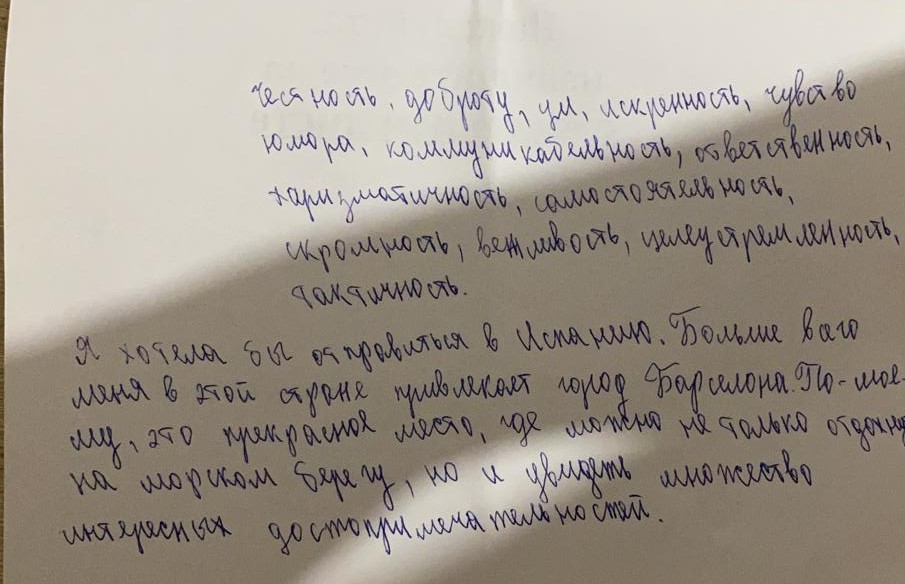 честность, доброту, ум, искренность, чувство
юмора, коммуникабельность, ответственность,
харизматичность, самостоятельность,
скромность, вежливость, целеустремленность,
тактичность.
Я хотела бы отправиться в Испанию. Больше всего
меня в этой стране привлекает город Барселона. По-мое-
му, это прекрасное место, где можно не только отдохну
на морском берегу, но и увидеть множество
интересных достопримечательностей.